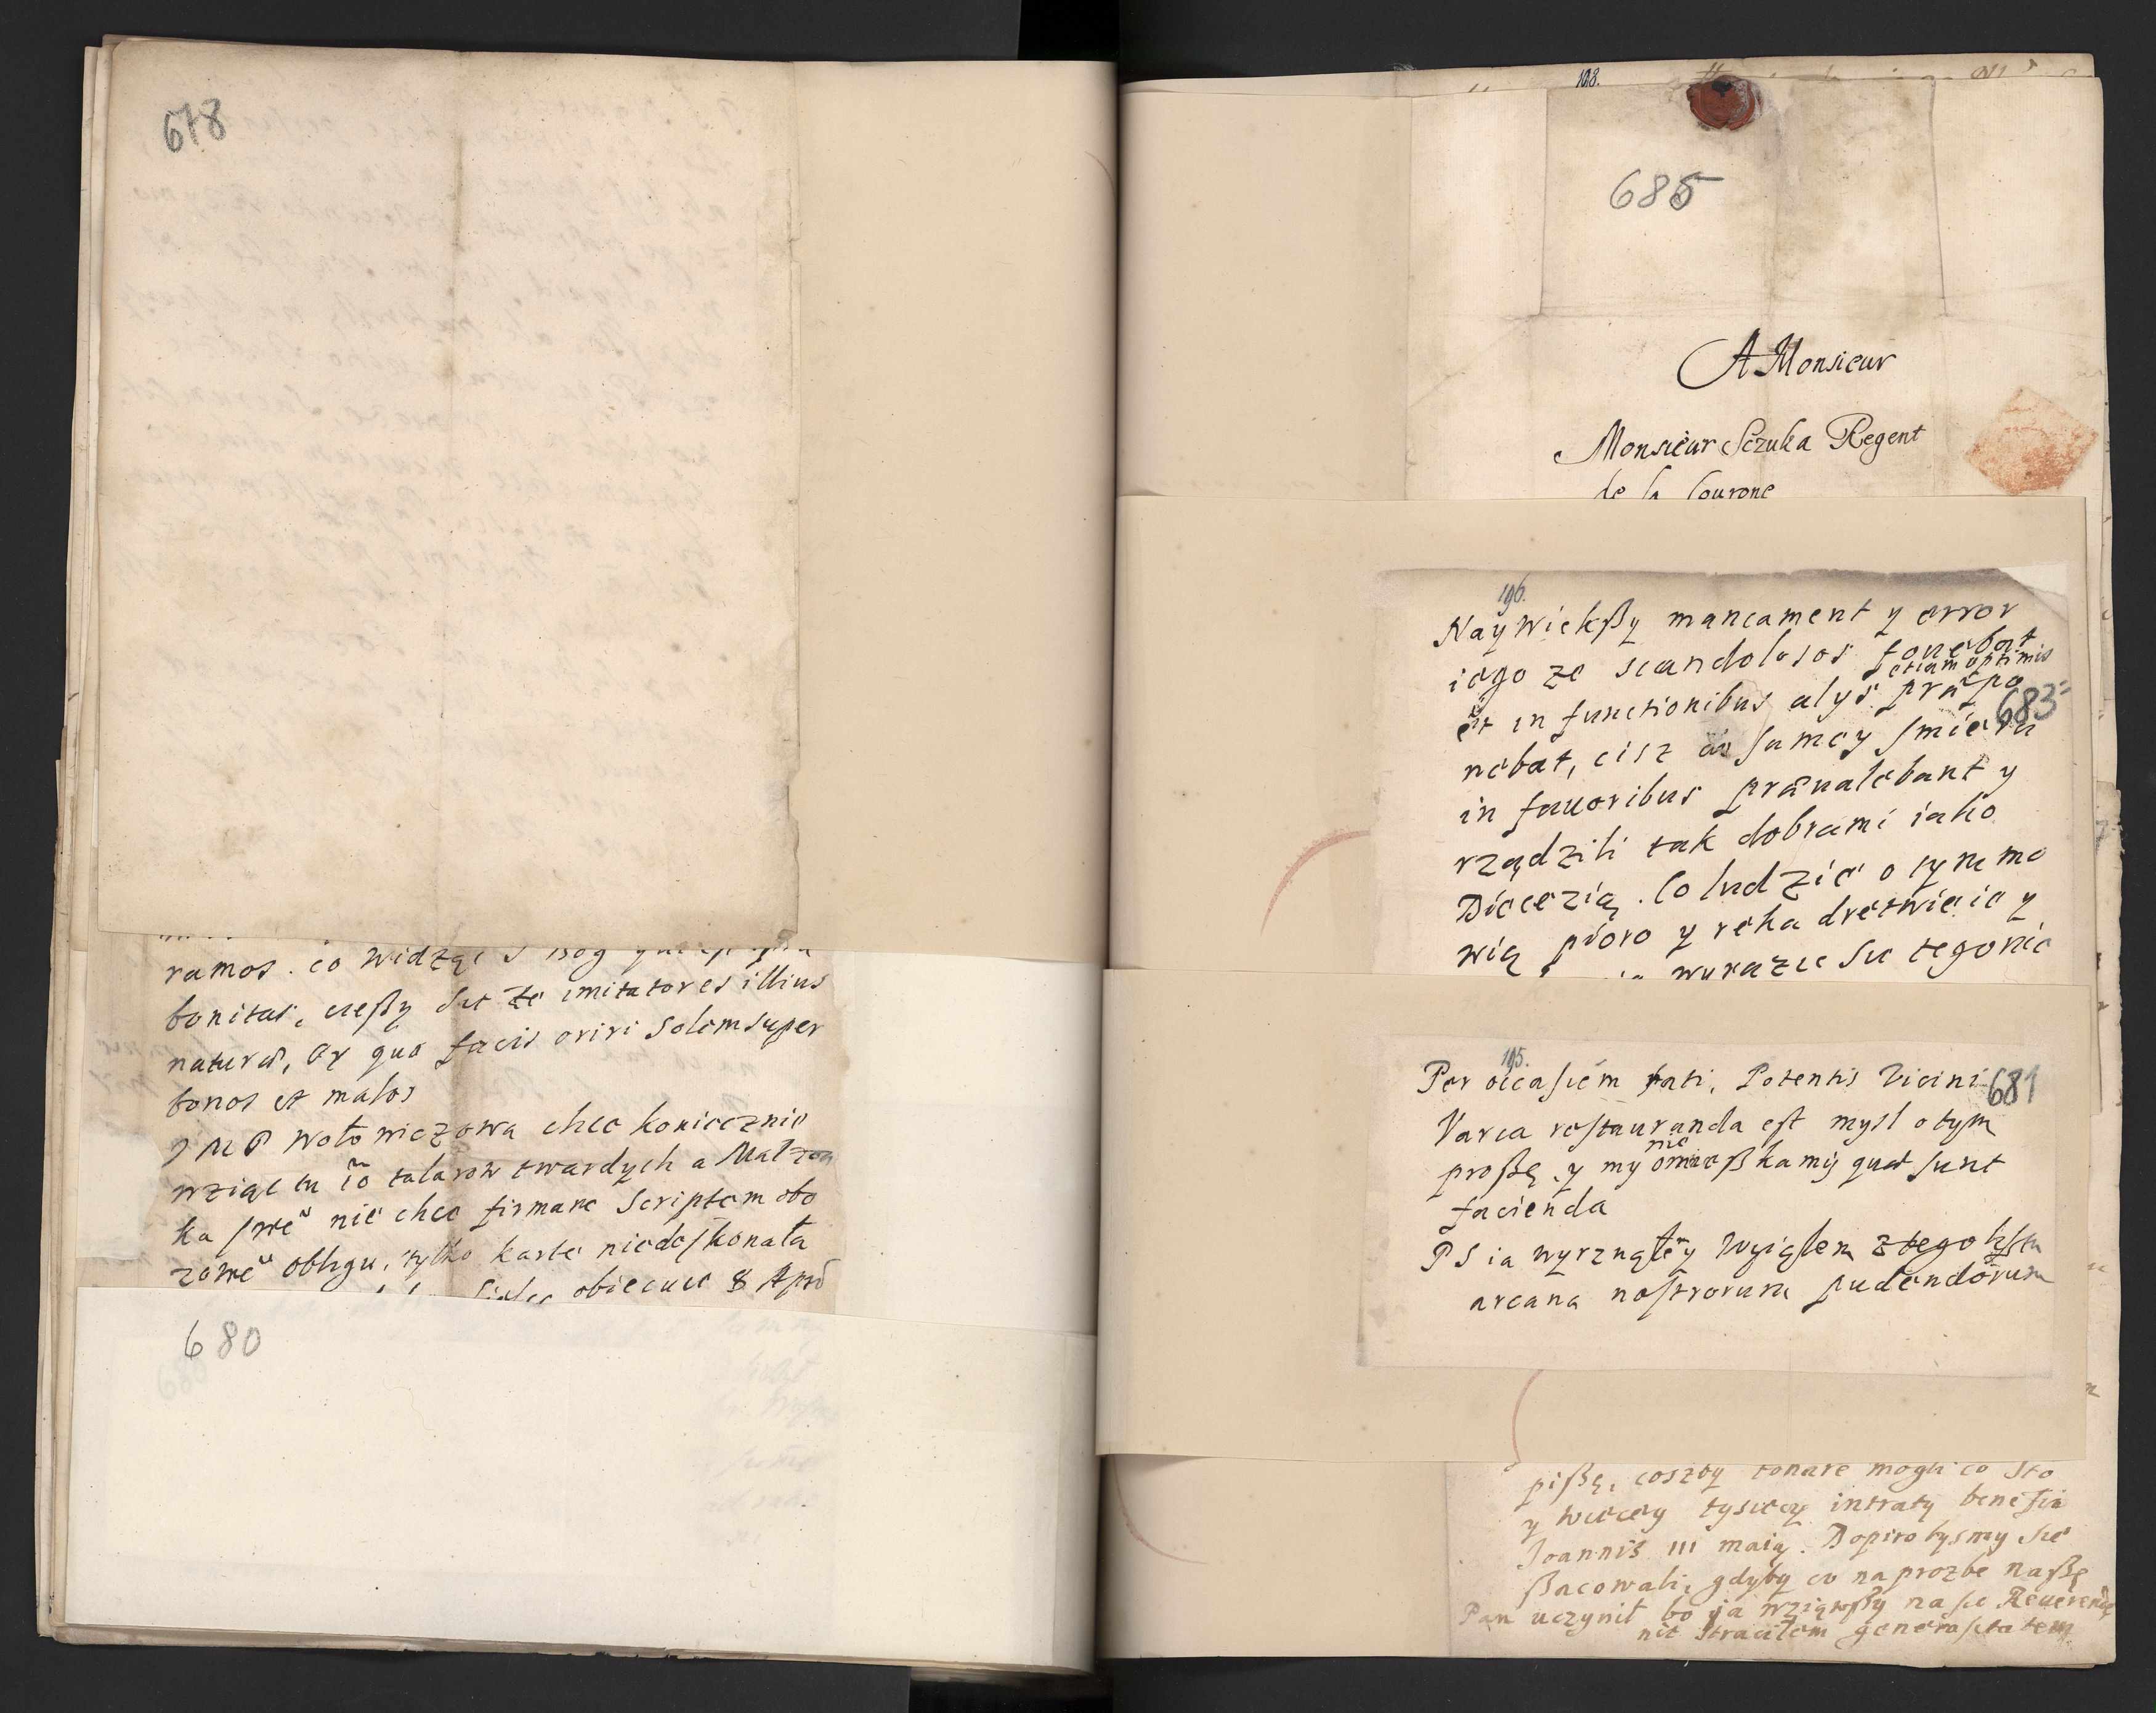 678
ramos. co widząc
bonitas, cieszy sie że imitatores illius
naturæ, Qr qua facis oriri Solem super
bonos et malos
J M P Wołowiczowa chce koniecznie
wziąc tu talarow twardych a Małzon
ka swe nie chce firmare Scriptem obo
zowe obligu, tylko karte niedoskonała
obiecuie 8 Apr
680
108.
685
A Monsieur
Monsieur Sczuka Regent
de la Courone
196.
Naywiekßy mancament y error
iego ze scandolosos fouebat
etiam optimis
et in functionibus alys præpo
683
nebat, cisz samey smierci
in fauoribus præualebant y
rządzili tak dobrami iako
Diecezią. Co ludzie o tym mo
wią pioro y reka dretwieie y
wyrazic sie tego nie
195.
Per occasiem fati, Potentis Vicini
681
Varca restauranda est mysl o tym
nie
proßę y my omießkamy quæ sunt
facienda
PS ia wyrznąłem y wyiąłem z tego listu
arcana nostrorum pudendorum
pißę, coszby tonare mogli co sto
y wiecey tysiecy intraty benefic
Joannis III maią. Dopiro bysmy sie
ßacowali, gdyby co na prozbe naßę
Pan uczynił bo ja wziąwßy na sie Reuerendę
nie straciłem generositatem